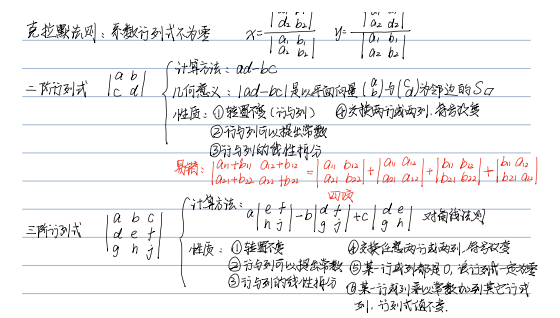 克拉默法则：系数行列式不为零 x = |d₁ b₁; d₂ b₂| / |a₁ b₁; a₂ b₂| y = |a₁ d₁; a₂ d₂| / |a₁ b₁; a₂ b₂|
二阶行列式 |a b; c d|
计算方法：ad-bc
几何意义：|ad-bc| 是以平面向量 (a b) 与 (c d) 为邻边的 S▱
性质：①转置不变（行与列） ④交换两行或两列，符号改变
②行与列可以提出常数
③行与列的线性拆分
易错：|a₁₁+b₁₁ a₁₂+b₁₂; a₂₁+b₂₁ a₂₂+b₂₂| = |a₁₁ b₁₂; a₂₁ b₂₂| + |a₁₁ a₁₂; a₂₁ a₂₂| + |b₁₁ b₁₂; b₂₁ b₂₂| + |b₁₁ a₁₂; b₂₁ a₂₂|
四项
三阶行列式 |a b c; d e f; g h j|
计算方法：a|e f; h j| - b|d f; g j| + c|d e; g h| 对角线法则
性质：①转置不变 ④交换任意两行或两列，符号改变
②行与列可以提出常数 ⑤某一行或列都是0，该行列式一定为零
③行与列的线性拆分 ⑥某一行或列乘以常数加到其它行或
列，行列式值不变.